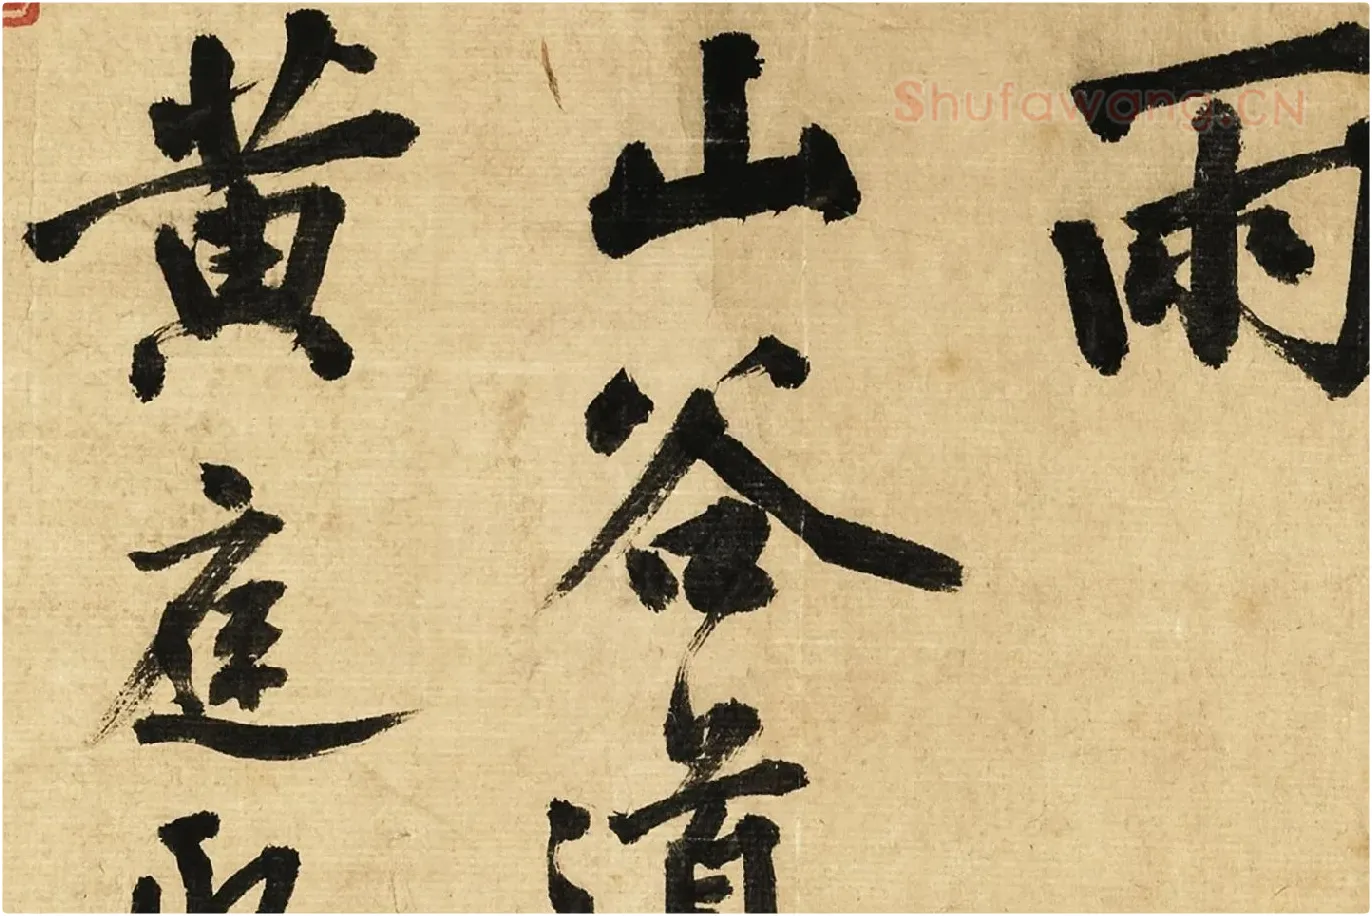 雨
山谷道
黄庭
Shufawang.CN